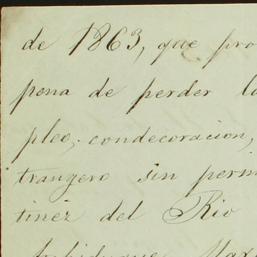 de 1863, que pro
pena de perder l
pleo, condecoracion,
trangero sin permi
tinez del Rio